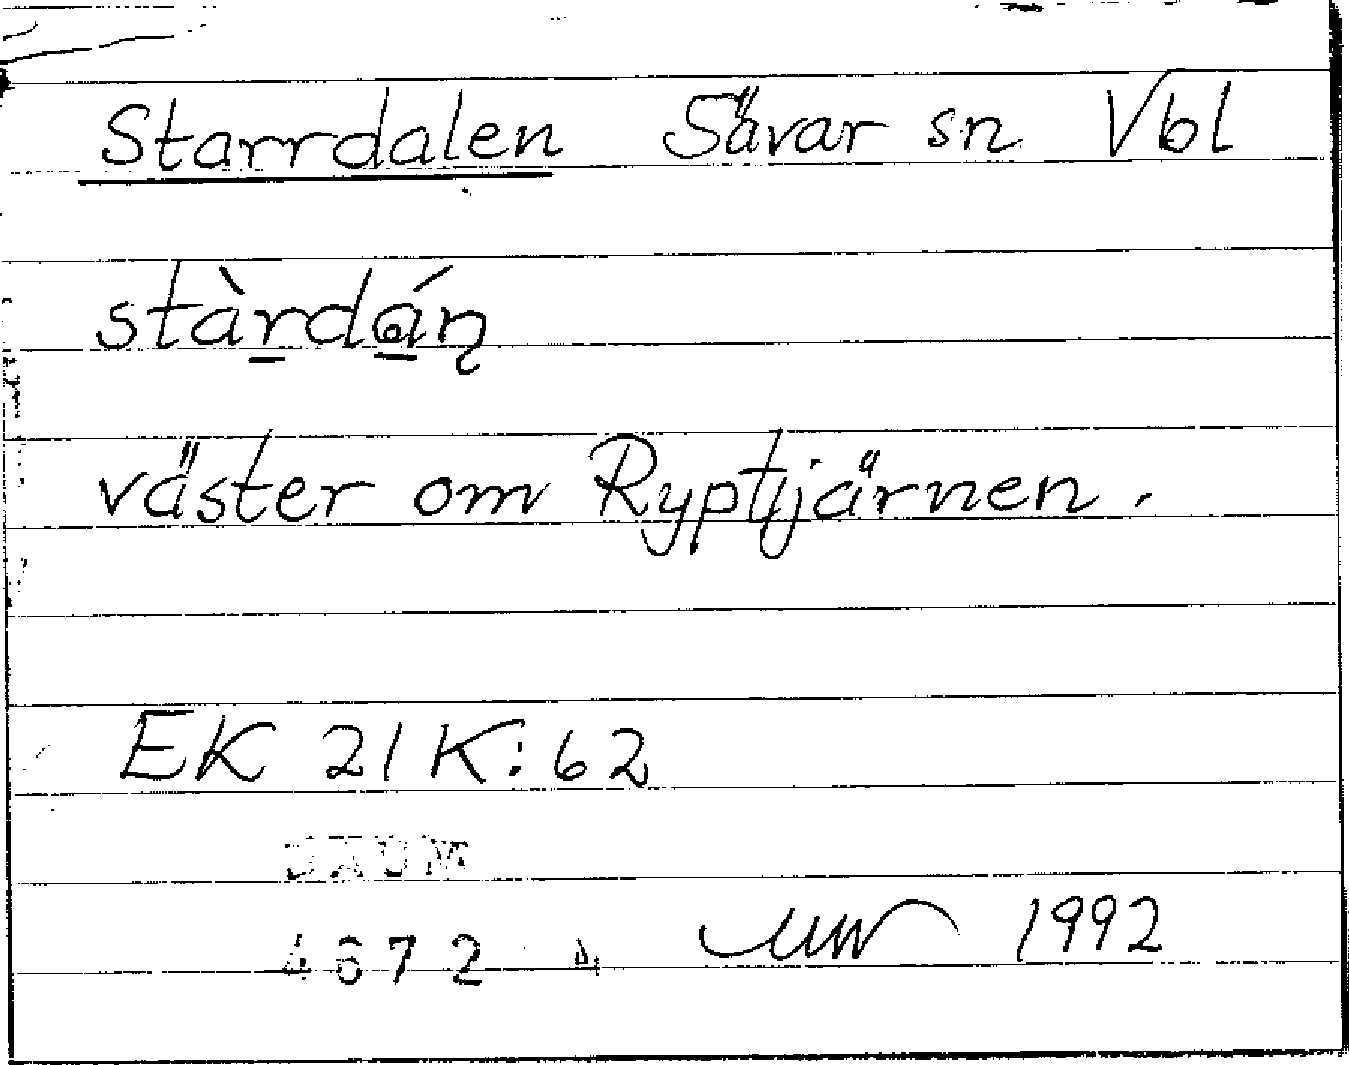 Starrdalen Sävar sn Vbl
stàr̲dá̲ɳ
väster om Ryptjärnen.
EK 21K:62
DAUM
4672
1992